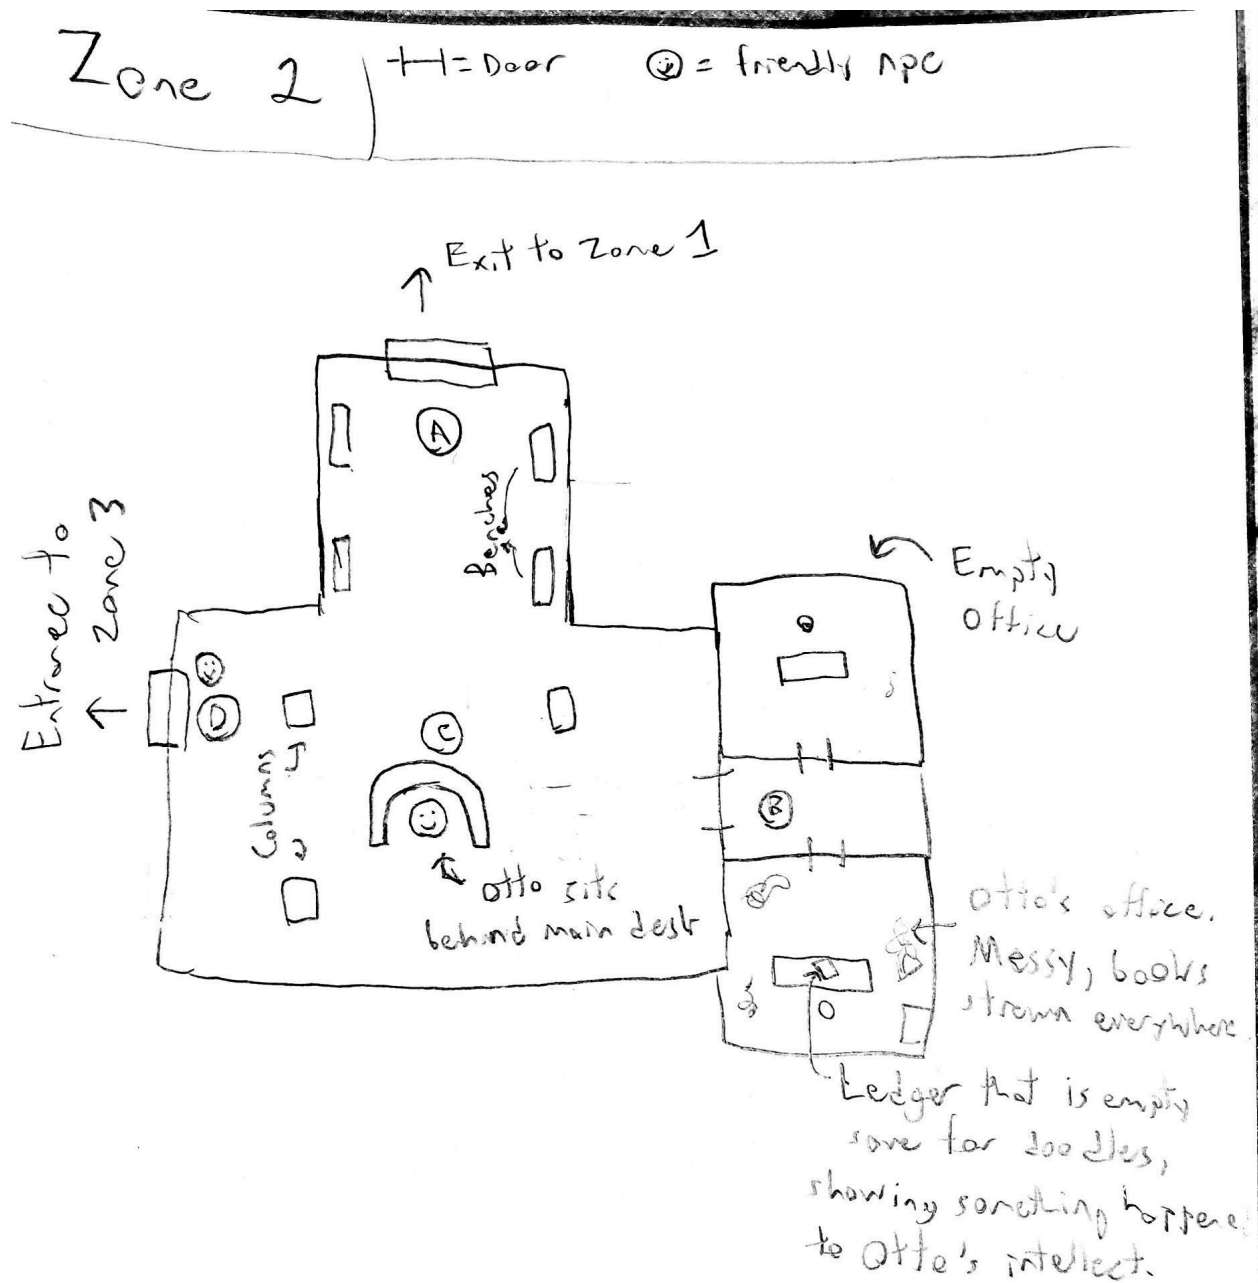 Zone 2
= Door
= friendly npc
Exit to Zone 1
A
Benches
Entrance to
Zone 3
Empty
Office
D
C
B
Columns
Otto sits
behind main desk
Otto's office.
Messy, books
strewn everywhere
Ledger that is empty
save for doodles,
showing something happene
to Otto's intellect.